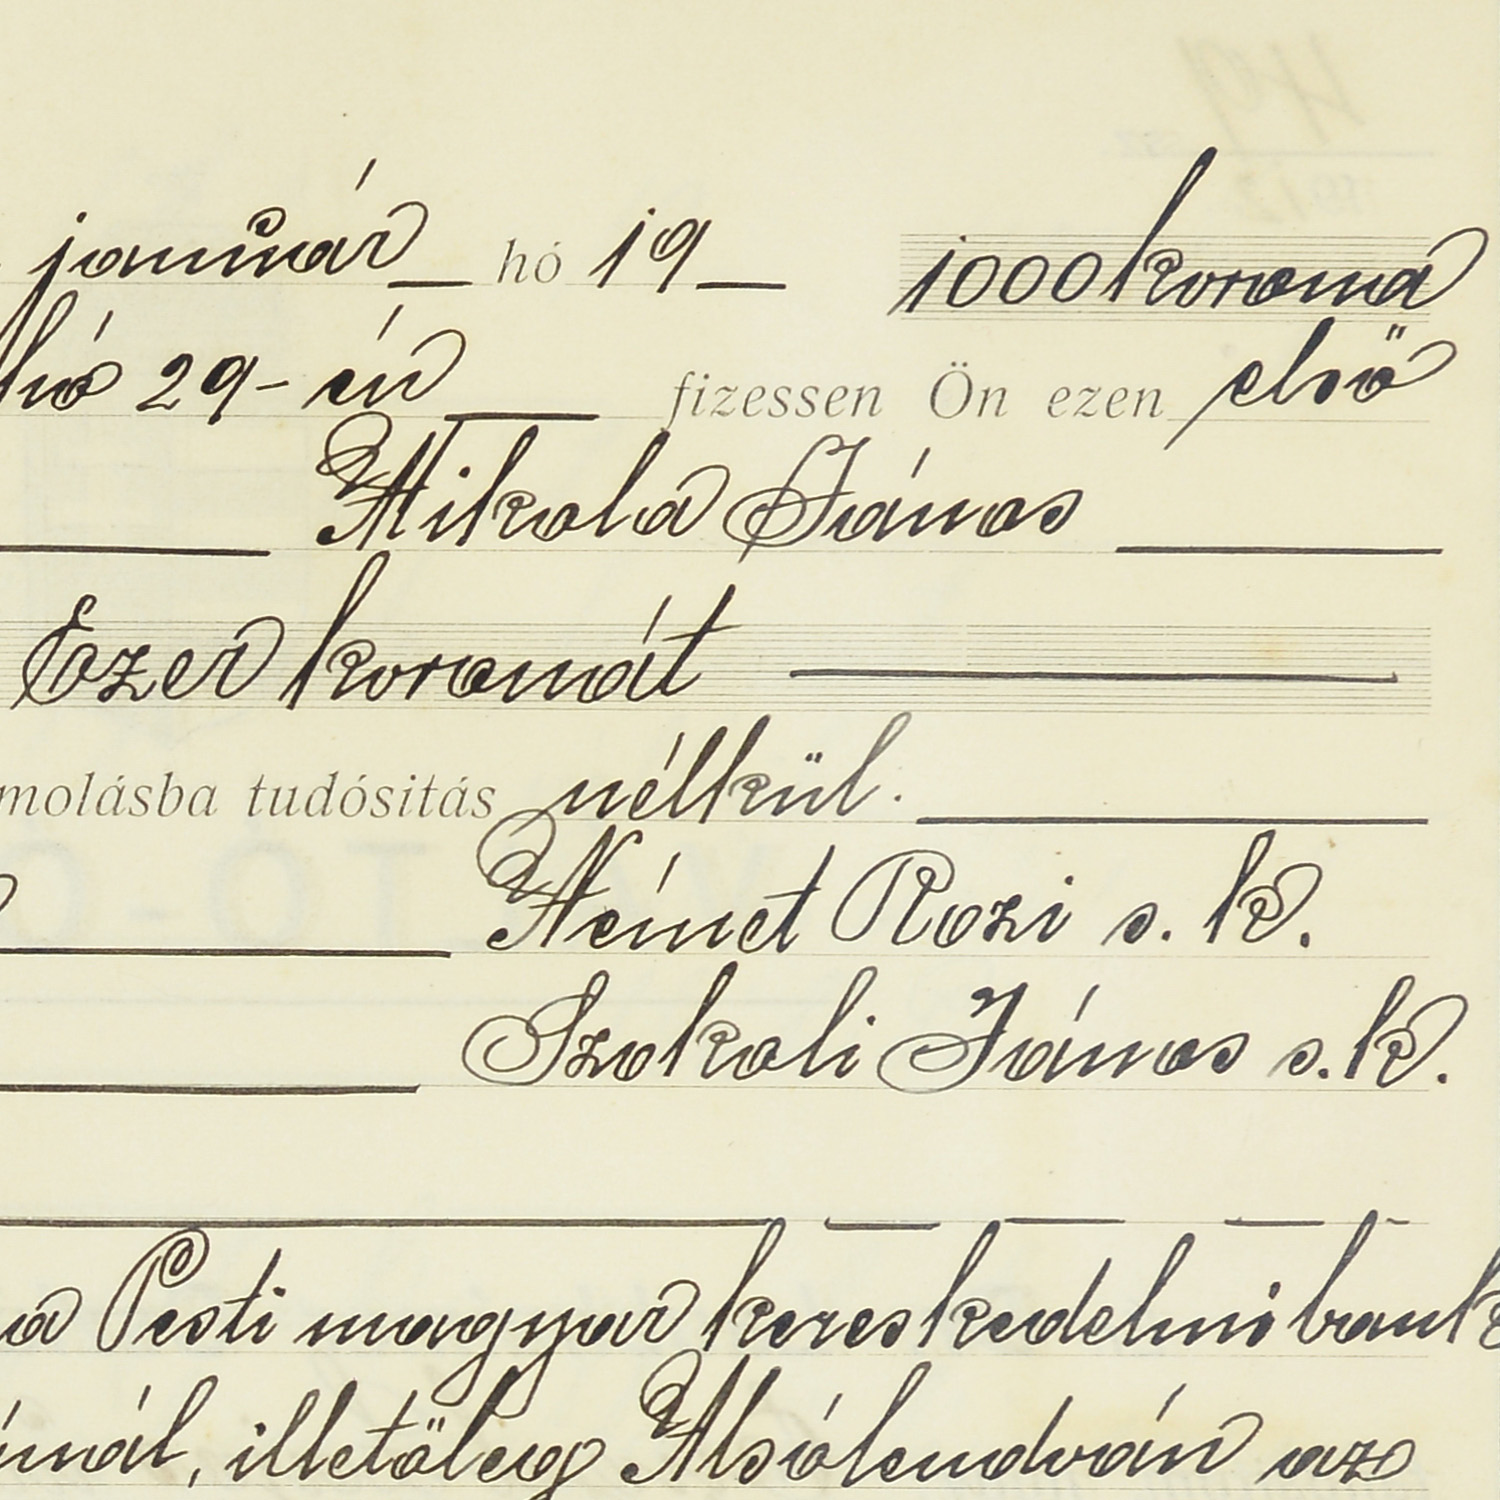 január hó 19 1000 korona
hó 29-én fizessen Ön ezen első
Mikola János
Ezer koronát
molásba tudósitás nélkül.
Német Rozi s. k.
Szokoli János s. k.
a Pesti magyar kereskedelmi bank
nál, illetőleg Alsólendván az